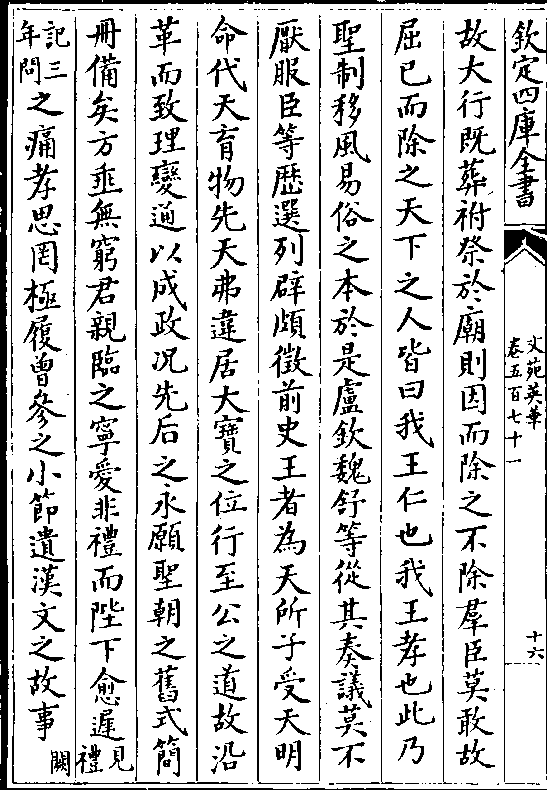 欽定四庫全書
文苑英華
卷五百七十一
十六
故大行既葬祔祭於廟則因而除之不除羣臣莫敢故
屈已而除之天下之人皆曰我王仁也我王孝也此乃
聖制移風易俗之本於是盧欽魏舒等從其奏議莫不
厭服臣等歴選列辟頗徵前史王者為天所子受天明
命代天育物先天弗違居大寶之位行至公之道故沿
革而致理變通以成政况先后之永願聖朝之舊式簡
冊備矣方垂無窮君親臨之寧愛非禮而陛下愈遲見禮
記三年問之痛孝思罔極履曾參之小節遺漢文之故事闕